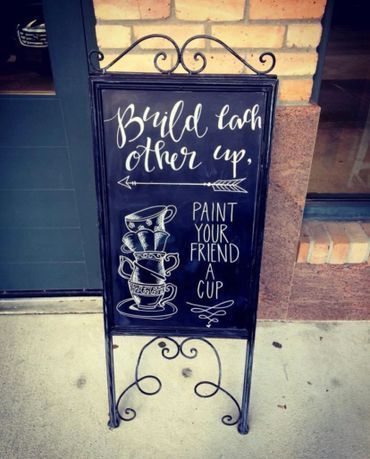 Build each
other up,
PAINT
YOUR
FRIEND
A
CUP